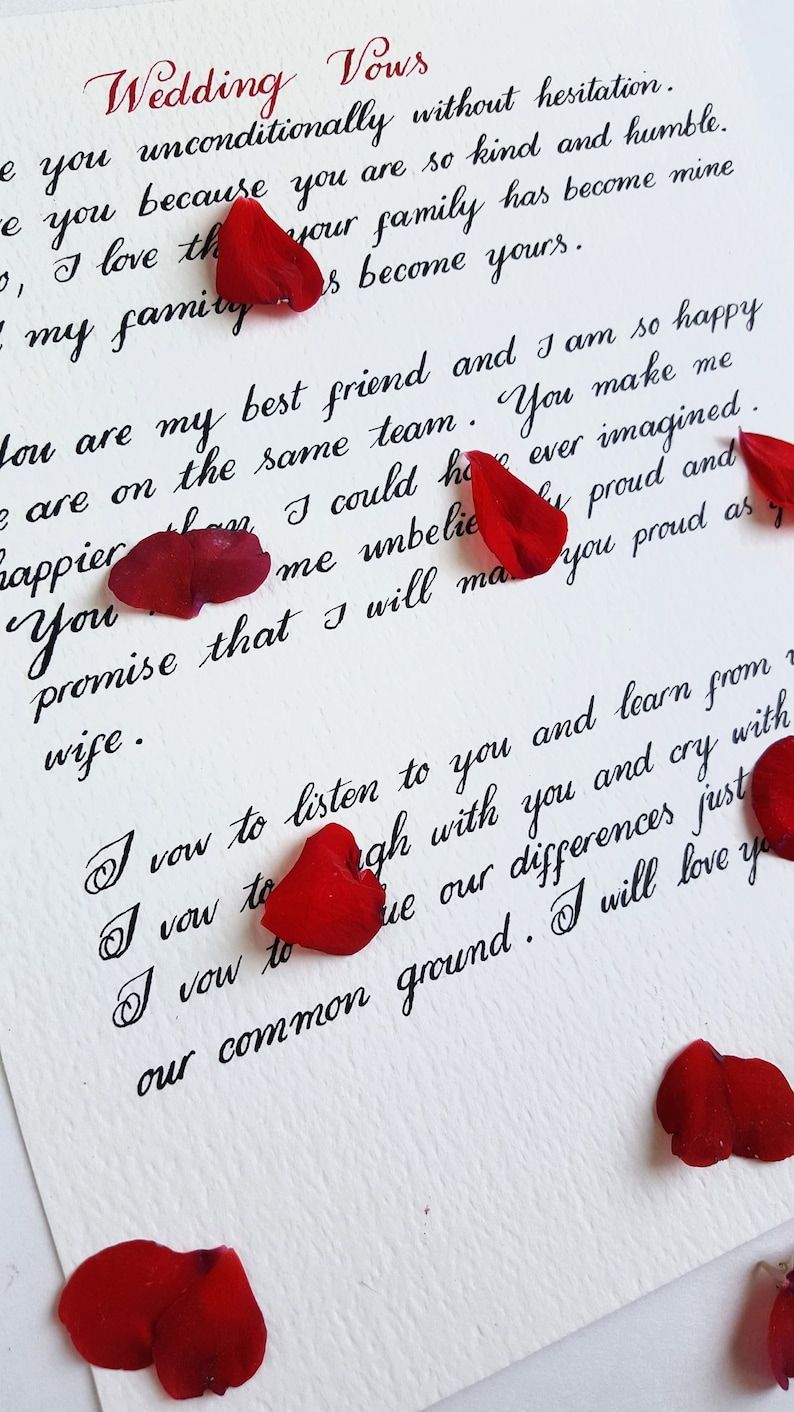 Wedding Vows
e you unconditionally without hesitation.
e you because you are so kind and humble.
o, I love your family has become mine
my family s become yours.
You are my best friend and I am so happy
e are on the same team. You make me
happier than I could have ever imagined.
You me unbelievably proud and
promise that I will make you proud as
wife.
I vow to listen to you and learn from
I vow to laugh with you and cry with
I vow to our differences just
our common ground. I will love